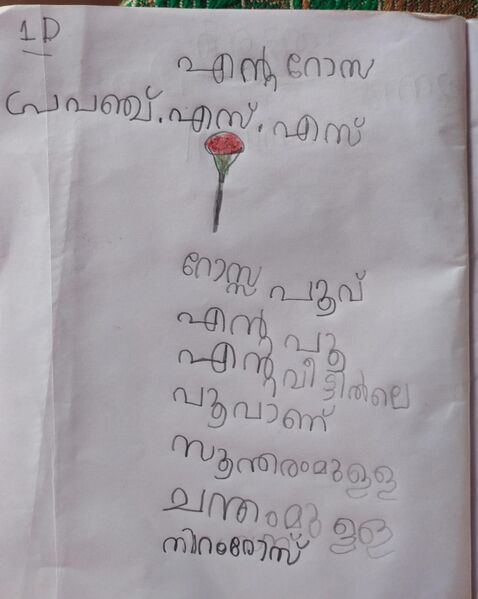 1D
എന്റ റോസ
പ്രപഞ്ച്.എസ്.എസ്
റോസ്സ പൂവ്
എന്റ പൂ
എന്റ വീട്ടിൽലെ
പൂവാണ്
സൂന്തരംമുളള
ചന്തംമുളള
നിറംരോസ്